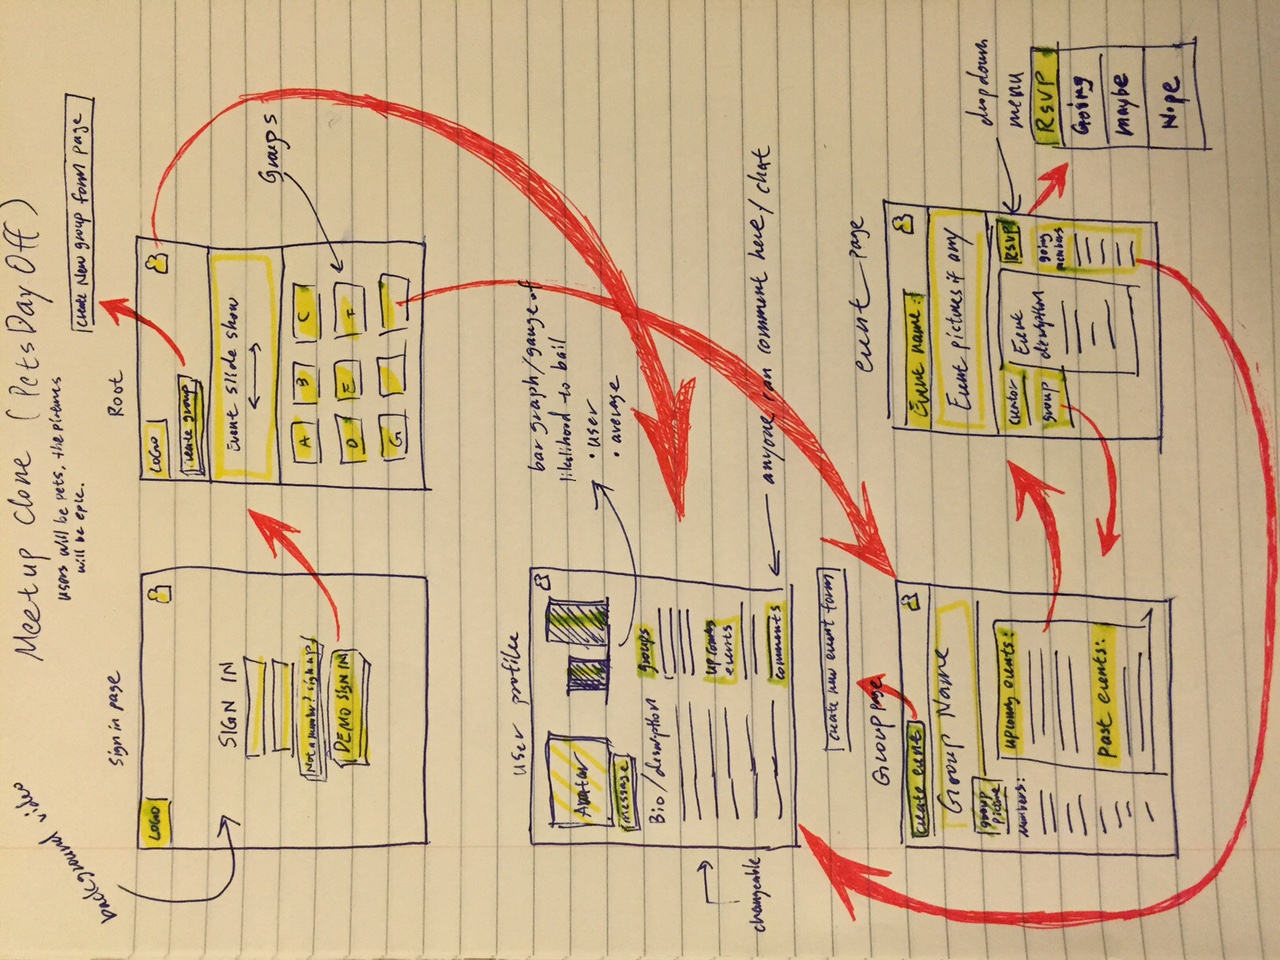 Meetup Clone (PetsDayOff)
users will be pets, the pictures
will be epic.
background video
Create New group form page
Sign in page
Root
LOGO
SIGN IN
Not a member? sign up!
DEMO SIGN IN
LOGO
create group
Event slide show
Groups
A B C
D E F
G
user profile
Avatar
message
Bio/description
groups
upcoming
events
comments
bar graph/gauge of
likelihood to bail
• user
• average
changeable
anyone can comment here / chat
create new event form
Group page
create event
Group Name
group
picture
Members:
upcoming events:
Past events:
event page
Event name:
Event pictures if any
creator
group
Event
description
RSVP
going
members
dropdown
menu
RSVP
Going
maybe
Nope